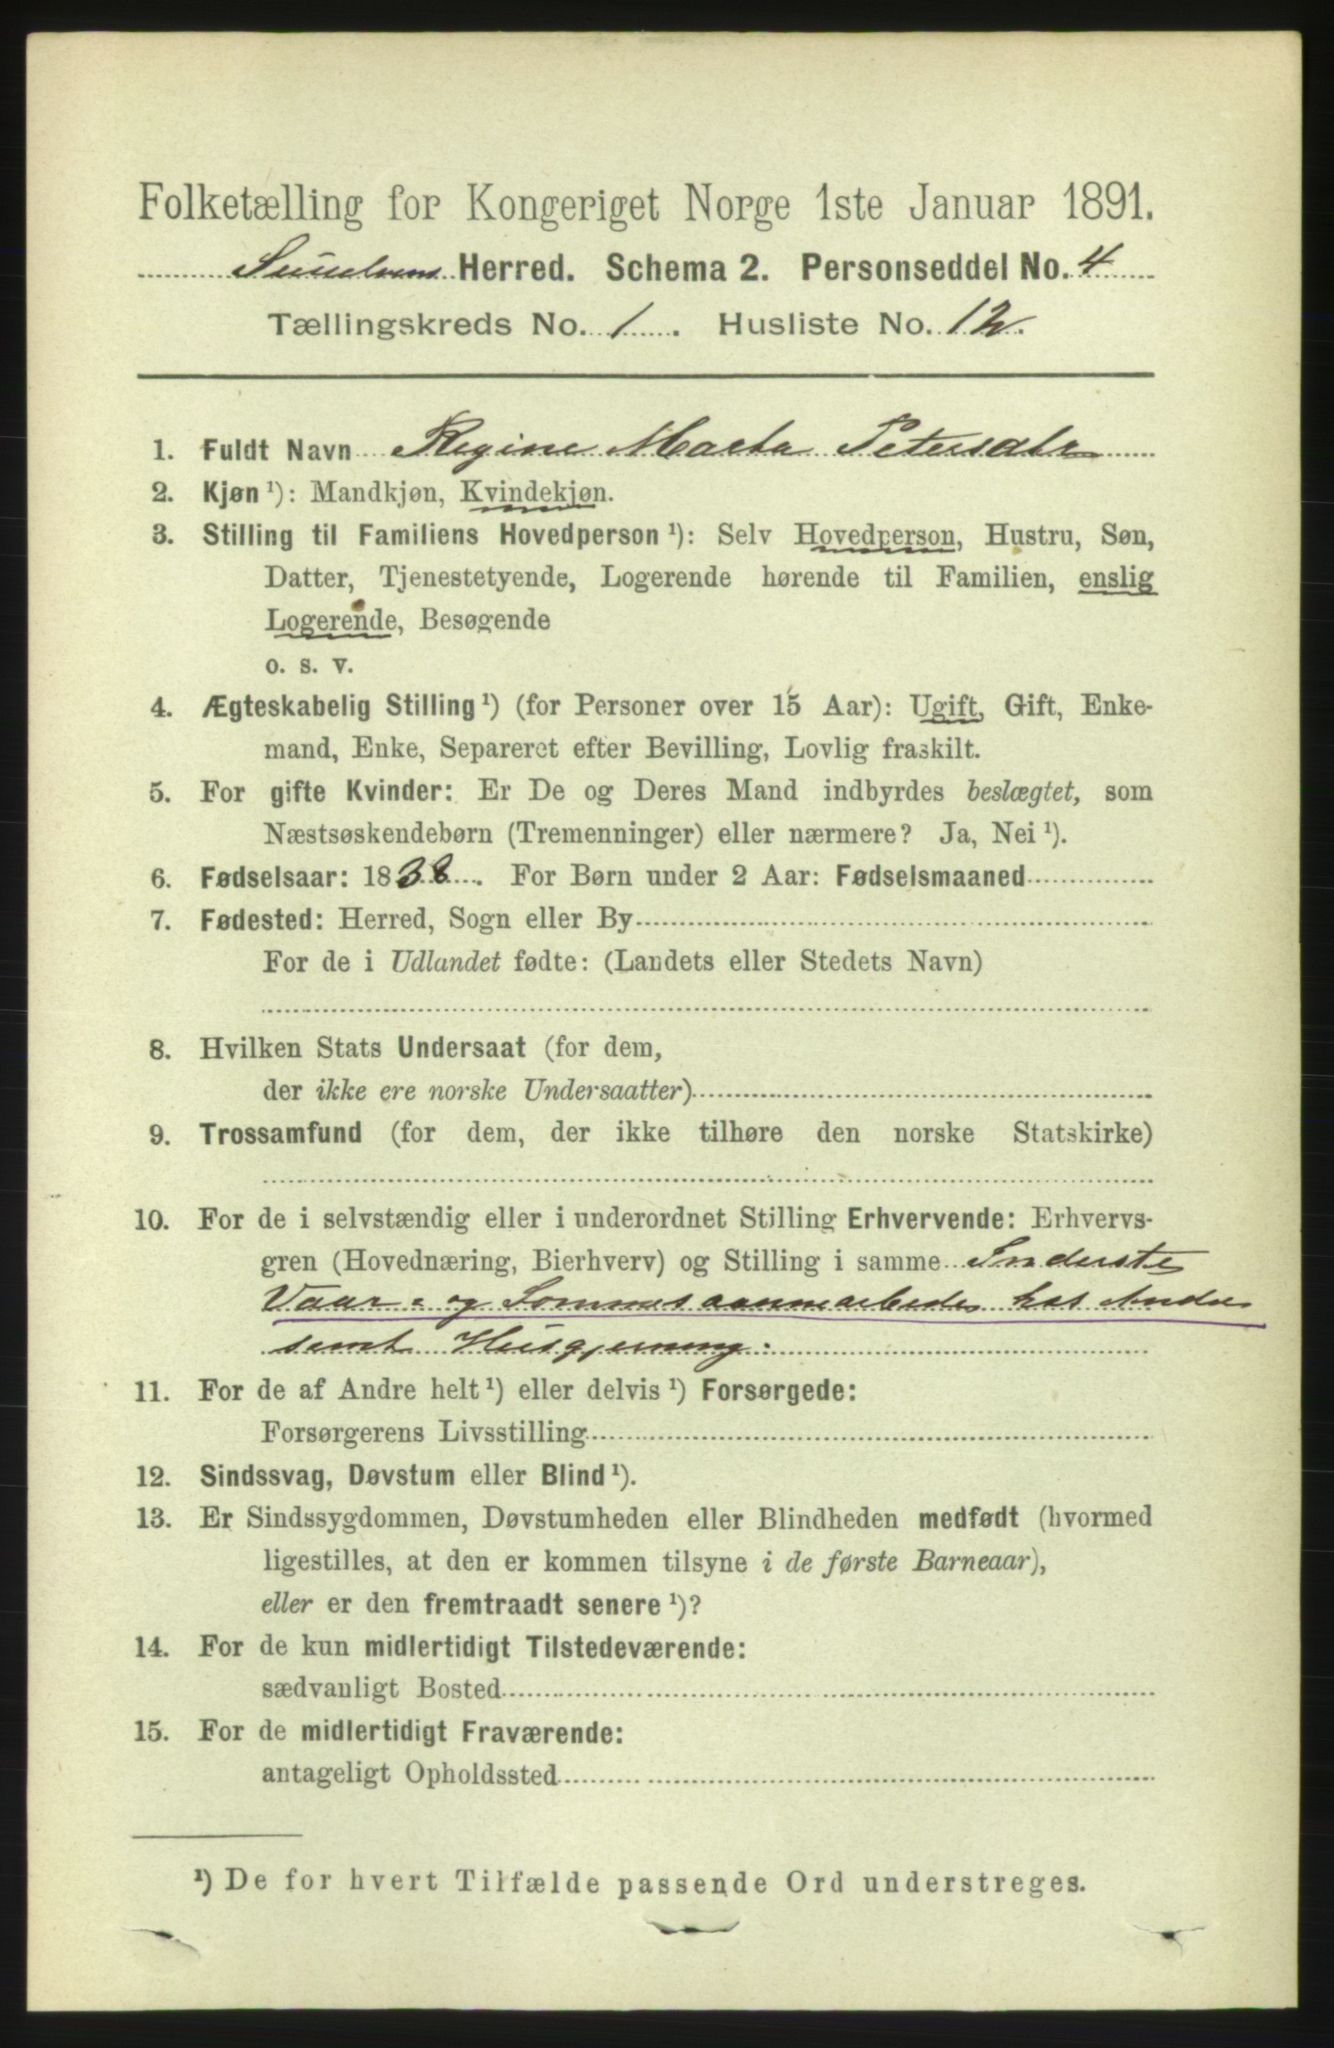 Folketælling for Kongeriget Norge 1ste Januar 1891.
Herred. Schema 2. Personseddel No. 4
Tællingskreds No. 1. Husliste No. 12.
1. Fuldt Navn Regine Marta
2. Kjøn ¹): Mandkjøn, Kvindekjøn.
3. Stilling til Familiens Hovedperson ¹): Selv Hovedperson, Hustru, Søn,
Datter, Tjenestetyende, Logerende hørende til Familien, enslig
Logerende, Besøgende
o. s. v.
4. Ægteskabelig Stilling ¹) (for Personer over 15 Aar): Ugift, Gift, Enke-
mand, Enke, Separeret efter Bevilling, Lovlig fraskilt.
5. For gifte Kvinder: Er De og Deres Mand indbyrdes beslægtet, som
Næstsøskendebørn (Tremenninger) eller nærmere? Ja, Nei ¹).
6. Fødselsaar: 1838. For Børn under 2 Aar: Fødselsmaaned
7. Fødested: Herred, Sogn eller By
For de i Udlandet fødte: (Landets eller Stedets Navn)
8. Hvilken Stats Undersaat (for dem,
der ikke ere norske Undersaatter)
9. Trossamfund (for dem, der ikke tilhøre den norske Statskirke)
10. For de i selvstændig eller i underordnet Stilling Erhvervende: Erhvervs-
gren (Hovednæring, Bierhverv) og Stilling i samme Inderste
Vaar- og hos Andre
samt Husgjerning.
11. For de af Andre helt ¹) eller delvis ¹) Forsørgede:
Forsørgerens Livsstilling
12. Sindssvag, Døvstum eller Blind ¹).
13. Er Sindssygdommen, Døvstumheden eller Blindheden medfødt (hvormed
ligestilles, at den er kommen tilsyne i de første Barneaar),
eller er den fremtraadt senere ¹)?
14. For de kun midlertidigt Tilstedeværende:
sædvanligt Bosted
15. For de midlertidigt Fraværende:
antageligt Opholdssted
¹) De for hvert Tilfælde passende Ord understreges.